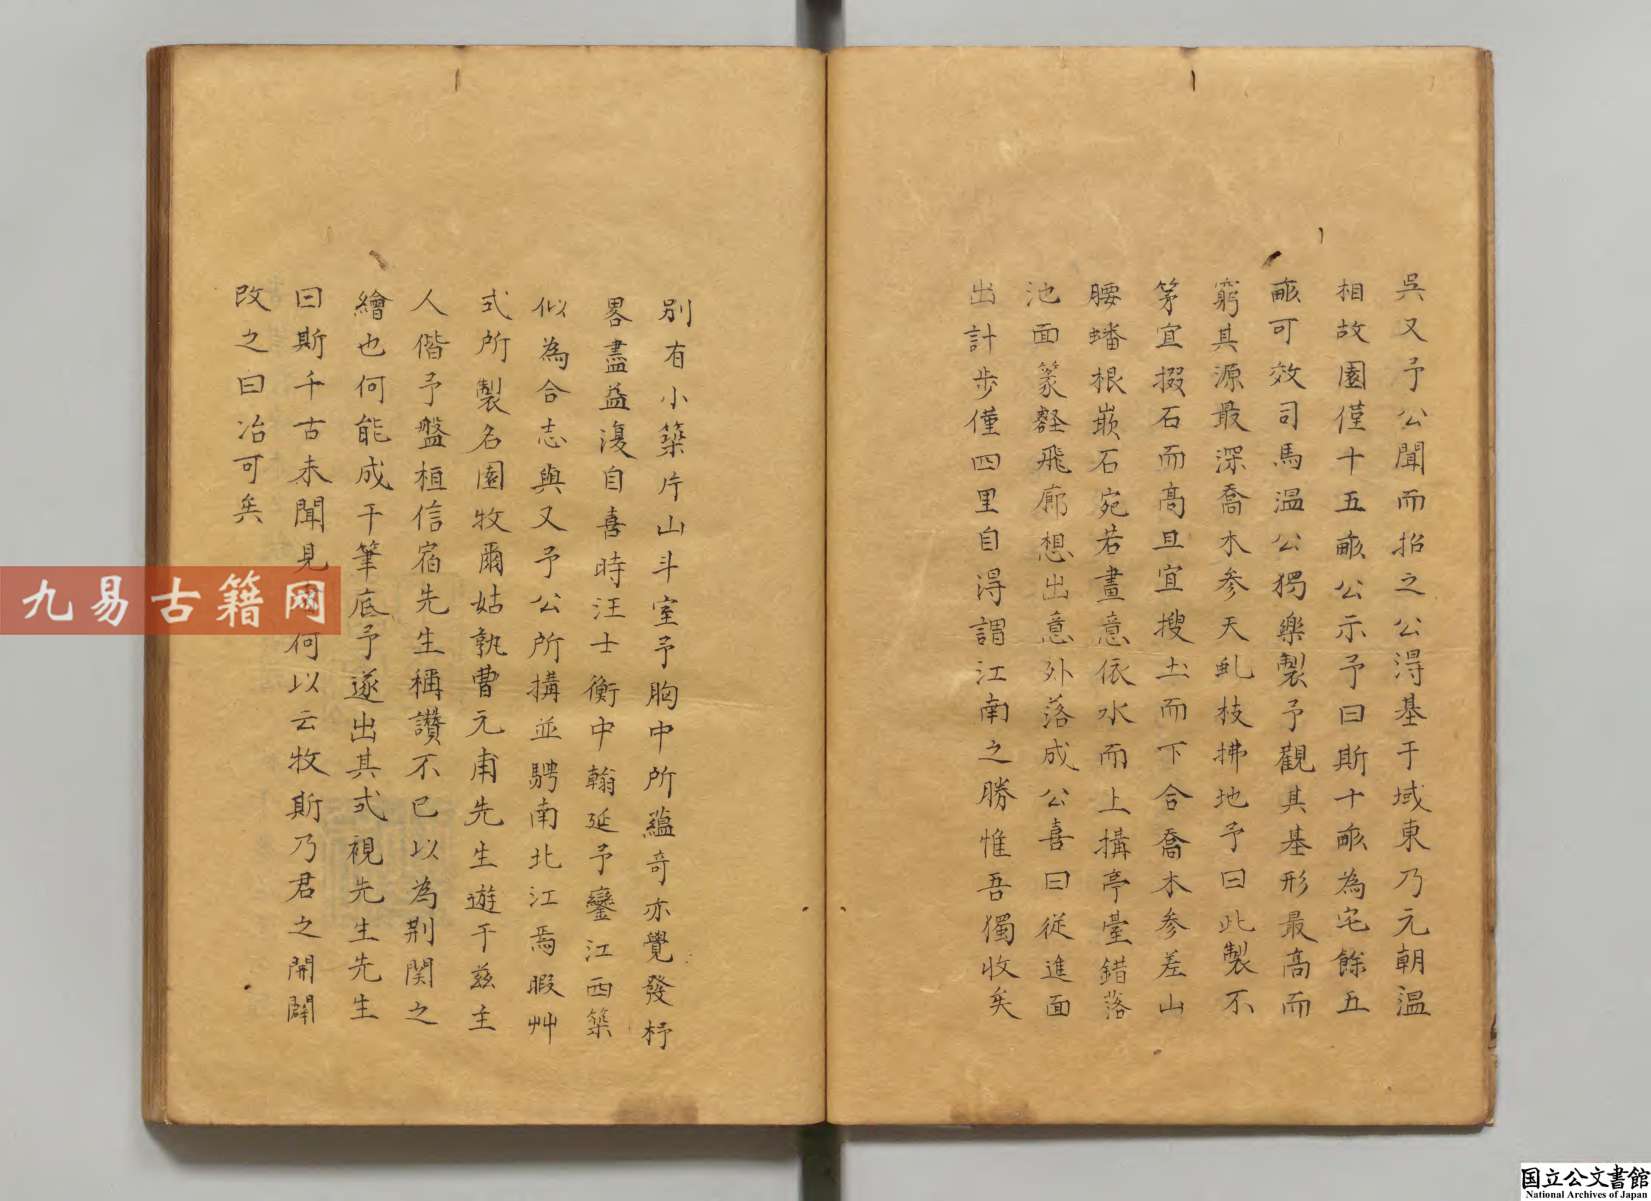 吳又予公聞而招之公淂基于域東乃元朝温
相故園僅十五畝公示予曰斯十畝為宅餘五
畝可效司馬温公獨樂製予觀其基形最高而
窮其源最深喬木參天虬枝拂地予曰此製不
苐宜掇石而高且宜搜土而下合喬木參差山
腰蟠根嵌石宛若畫意依水而上搆亭臺錯落
池面篆壑飛廊想出意外落成公喜曰從進面
出計步僅四里自淂謂江南之勝惟吾獨收矣
別有小築片山斗室予胸中所蘊奇亦覺發杼
畧盡益漫自喜時汪士衡中翰延予鑾江西築
似為合志與又予公所搆並騁南北江焉暇艸
式所製名園牧爾姑孰曹元甫先生遊于兹主
人偕予盤桓信宿先生稱讚不已以為荆関之
繪也何能成于筆底予遂出其式視先生先生
曰斯千古未聞見何以云牧斯乃君之開闢
改之曰冶可矣
九易古籍网
国立公文書館
National Archives of Japan